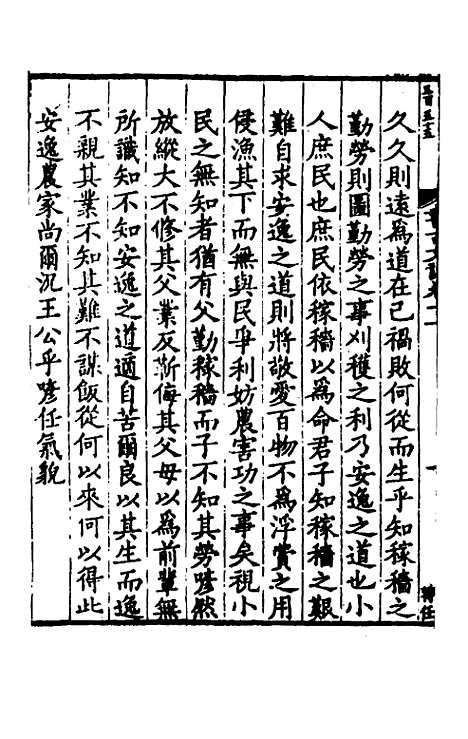 久久則遠為道在己禍敗何從而生乎知稼穡之
勤勞則圖勤勞之事刈穫之利乃安逸之道也小
人庶民也庶民依稼穡以為命君子知稼穡之艱
難自求安逸之道則將敬愛百物不為浮費之用
侵漁其下而無與民爭利妨農害功之事矣視小
民之無知者猶有父勤稼穡而子不知其勞喭然
放縱大不修其父業反斯侮其父母以為前輩無
所識知不知安逸之道適自苦爾良以其生而逸
不親其業不知其難不謀飯從何以來何以得此
安逸農家尚爾況王公乎喭任氣貌